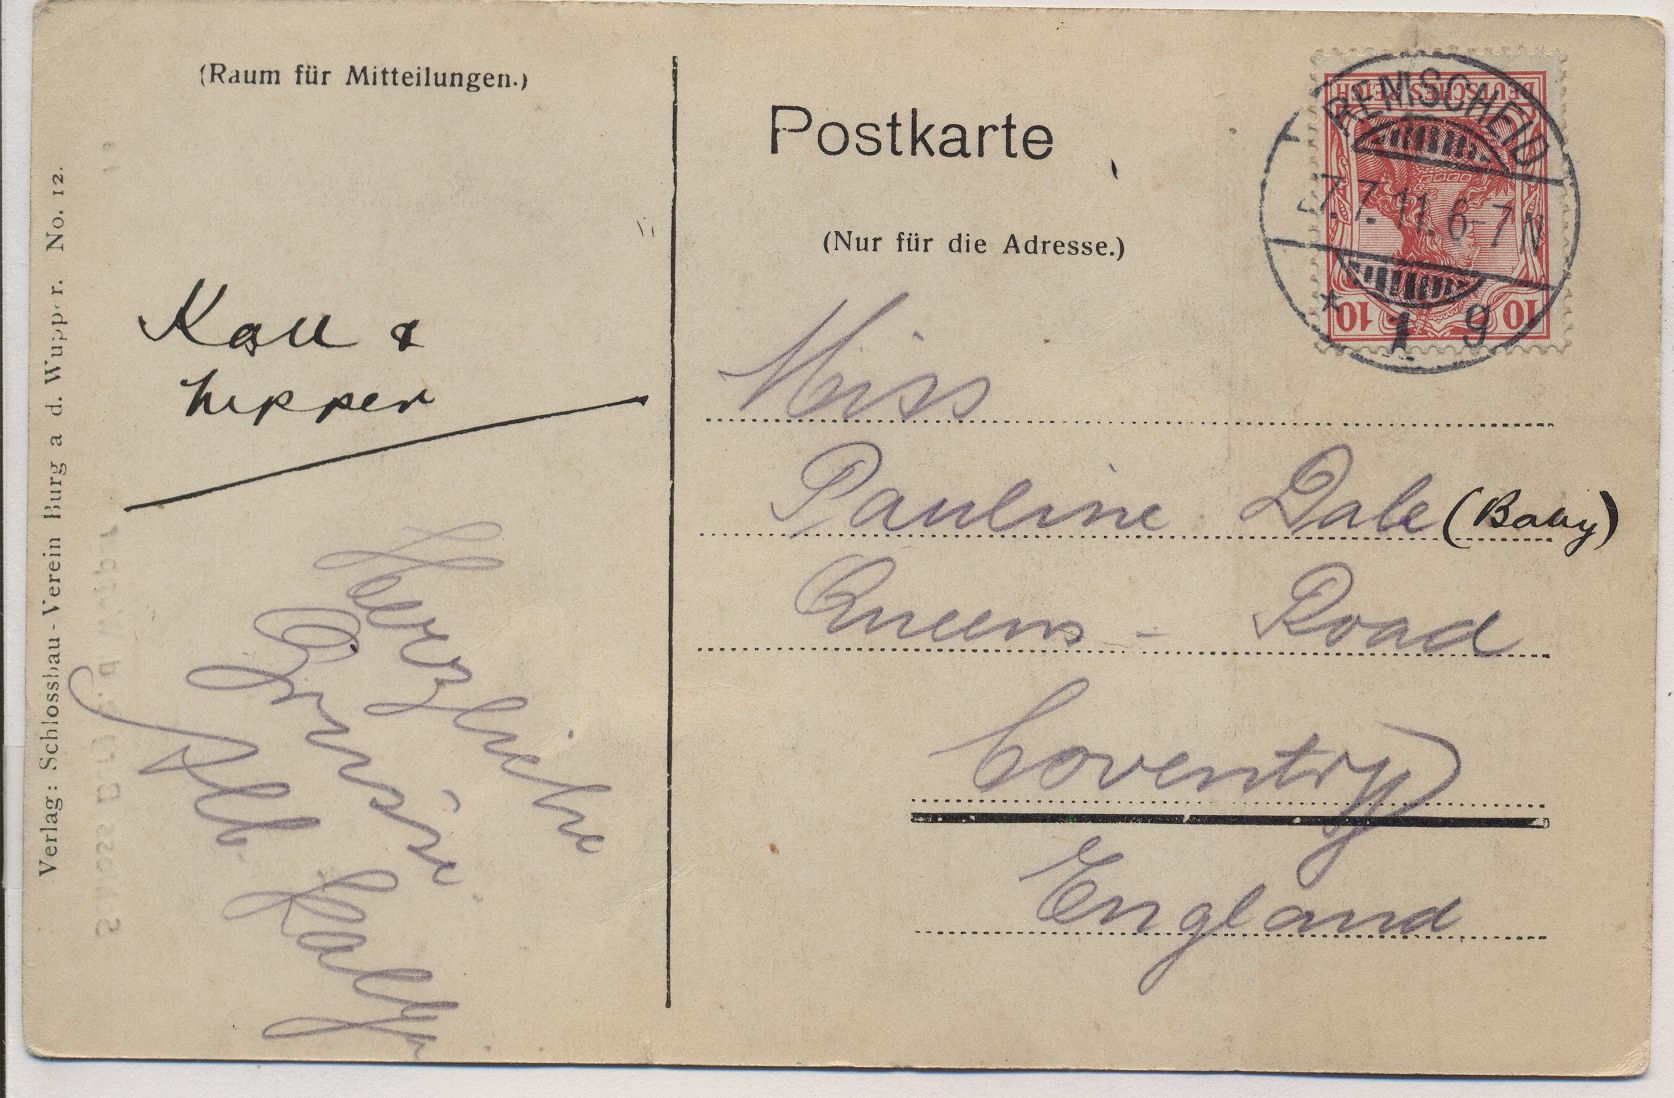 (Raum für Mitteilungen.)
Postkarte
(Nur für die Adresse.)
DEUTSCHES REICH
10 10
REMSCHEID
7.7.11. 6-7 N
* 1 g
Miss
Pauline Dale (Baby)
Queens - Road
Coventry
England
&
Herzliche
Grüsse
Alb.
Verlag: Schlossbau-Verein Burg a d. Wupper. No. 12.